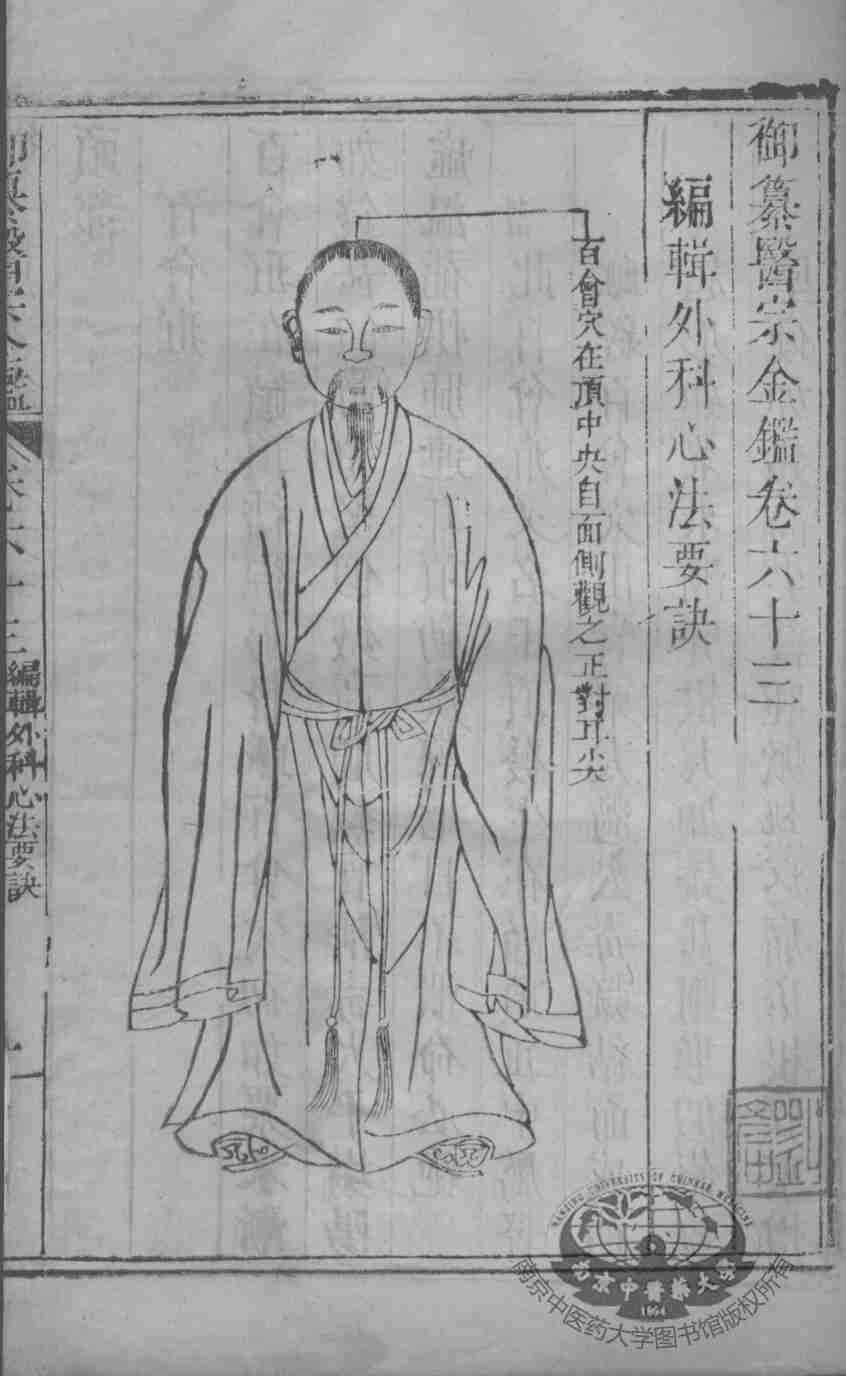 御纂醫宗金鑑卷六十三
編輯外科心法要訣
百會穴在頂中央自面側觀之正對耳尖
編輯外科心法要訣
NANJING UNIVERSITY OF CHINESE MEDICINE
南京中醫藥大學
1954
南京中医药大学图书馆版权所有